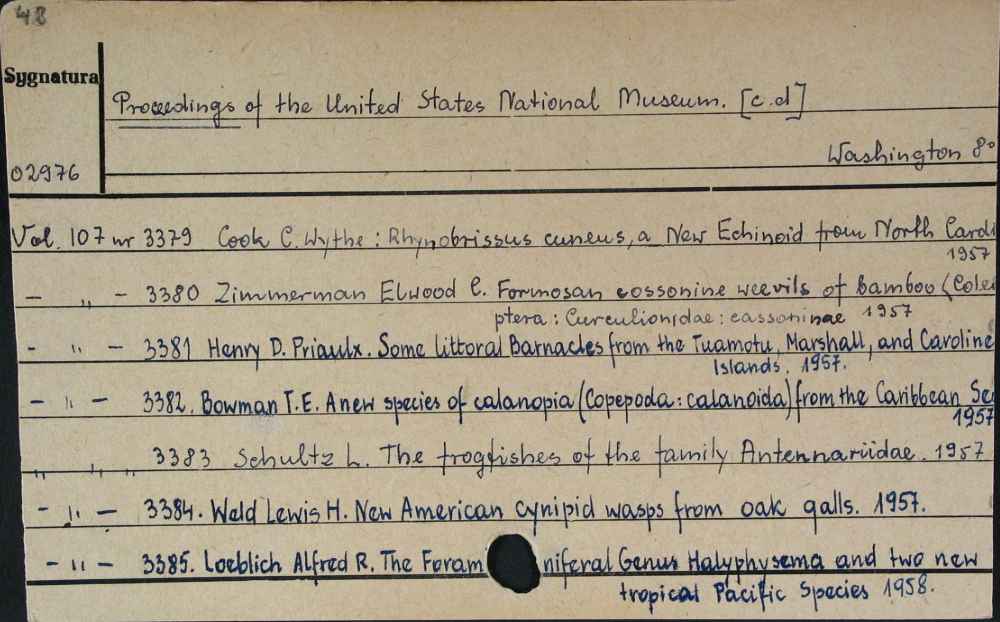 48
Sygnatura
Proceedings of the United States National Museum. [c.d]
Washington 8°
02976
Vol. 107 nr 3379 Cook C. Wythe: Rhynobrissus cuneus, a New Echinoid from North Caroli
1957
— „ — 3380 Zimmerman Elwood C. Formosan cossonine weevils of bamboo (Coleo
ptera: Curculionidae: cassoninae 1957
- „ - 3381 Henry D. Priaulx. Some littoral Barnacles from the Tuamotu, Marshall, and Caroline
Islands. 1957.
- „ - 3382. Bowman T.E. A new species of calanopia (Copepoda: calanoida) from the Caribbean Sea
1957
„ „ „ 3383 Schultz L. The frogfishes of the family Antennariidae. 1957
- „ - 3384. Weld Lewis H. New American cynipid wasps from oak galls. 1957.
- „ - 3385. Loeblich Alfred R. The Foram niferal Genus Halyphysema and two new
tropical Pacific Species 1958.